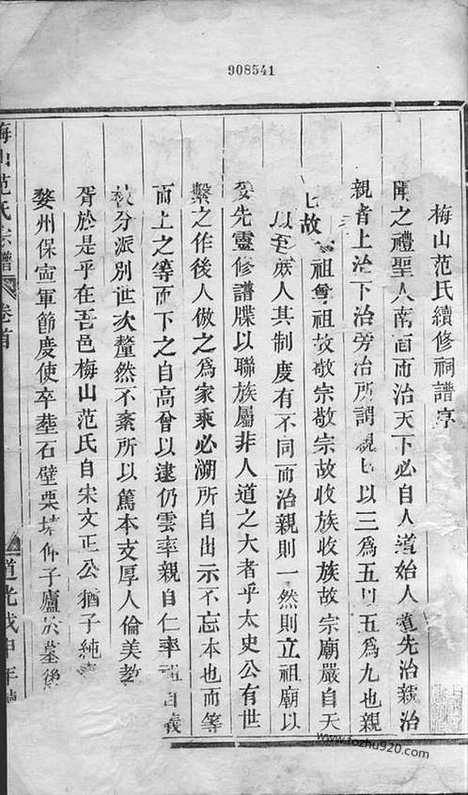 908541
梅山范氏續修祠譜序
聞之禮聖人南面而治天下必自人道始人道先治親治
親者上治下治旁治所謂親以三爲五以五爲九也親
故尊祖尊祖故敬宗敬宗故收族收族故宗廟嚴自天
以至庶人其制度有不同而治親則一然則立祖廟以
妥先靈修譜牒以聯族屬非人道之大者乎太史公有世
繫之作後人倣之爲家乘必溯所自出示不忘本也而等
而上之等而下之自高曾以逮仍雲率親自仁率祖自義
分派別世次釐然不紊所以篤本支厚人倫美教
胥於是乎在吾邑梅山范氏自宋文正公猶子純
婺州保寧軍節度使卒葬石壁栗塘仲子廬於墓後
梅山范氏宗譜 卷首 道光戊申年
www.tozhu920.com